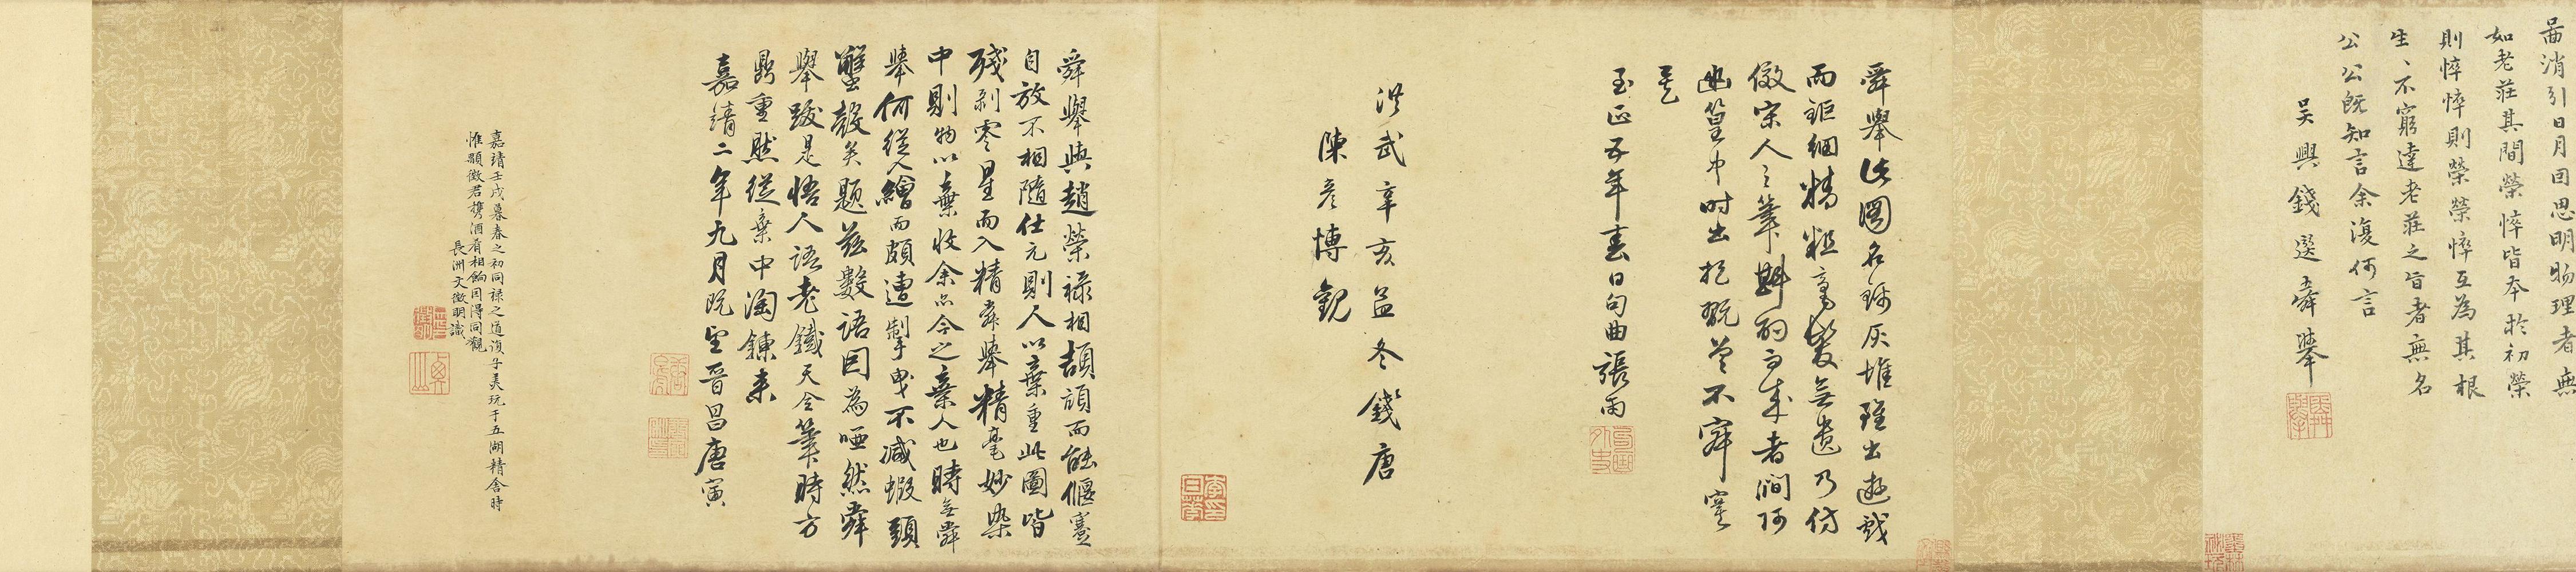 晝消引日月因思明物理者無
如老莊其間榮悴皆本於初榮
則悴悴則榮榮悴互為其根
生生不窮達老莊之旨者無名
公公既知言余復何言
吳興錢選舜舉
舜舉此圖名錦灰堆雖出遊戲
而鉅細精粗高髮無遺乃仿
倣宋人之筆斟酌而成者澗阿
幽篁中時出把翫差不寂寞
矣
至正五年春日句曲張雨
洪武辛亥孟冬錢唐
陳彥博觀
舜舉與趙榮祿相頡頏而能偃蹇
自放不相隨仕元則人以棄重此圖皆
殘剝零星而入精舜舉精毫妙染
中則物以棄收余品今之棄人也時無舜
舉何從入繪而頗遭掣曳不減蝦頭
蟹殼矣題茲數語因為啞然舜
舉跋是悟人語老鐵天全筆時方
鼎重然從棄中淘鍊來
嘉靖二年九月既望晉昌唐寅
嘉靖壬戌暮春之初同祿之道復子美玩于五湖精舍時
惟顯徵君攜酒肴相餉因得同觀
長洲文徵明識